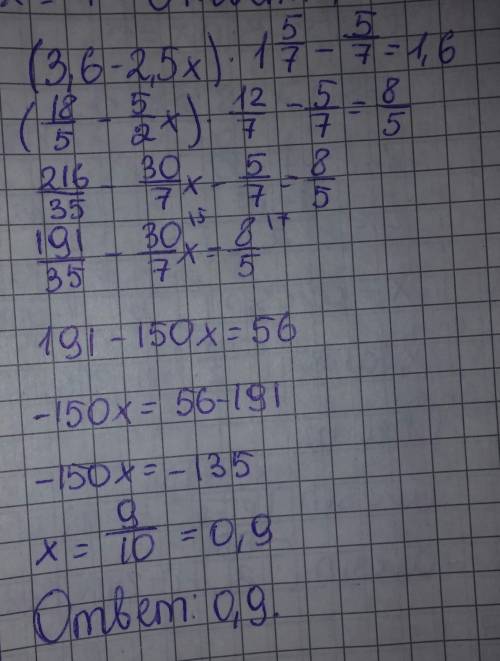 (3,6-2,5x)·1 5/7 - 5/7 = 1,6
(18/5 - 5/2x)·12/7 - 5/7 = 8/5
216/35 - 30/7x - 5/7 = 8/5
191/35 - 30/7x^15 = 8/5^17
191-150x=56
-150x=56-191
-150x=-135
x=9/10=0,9
Ответ: 0,9.